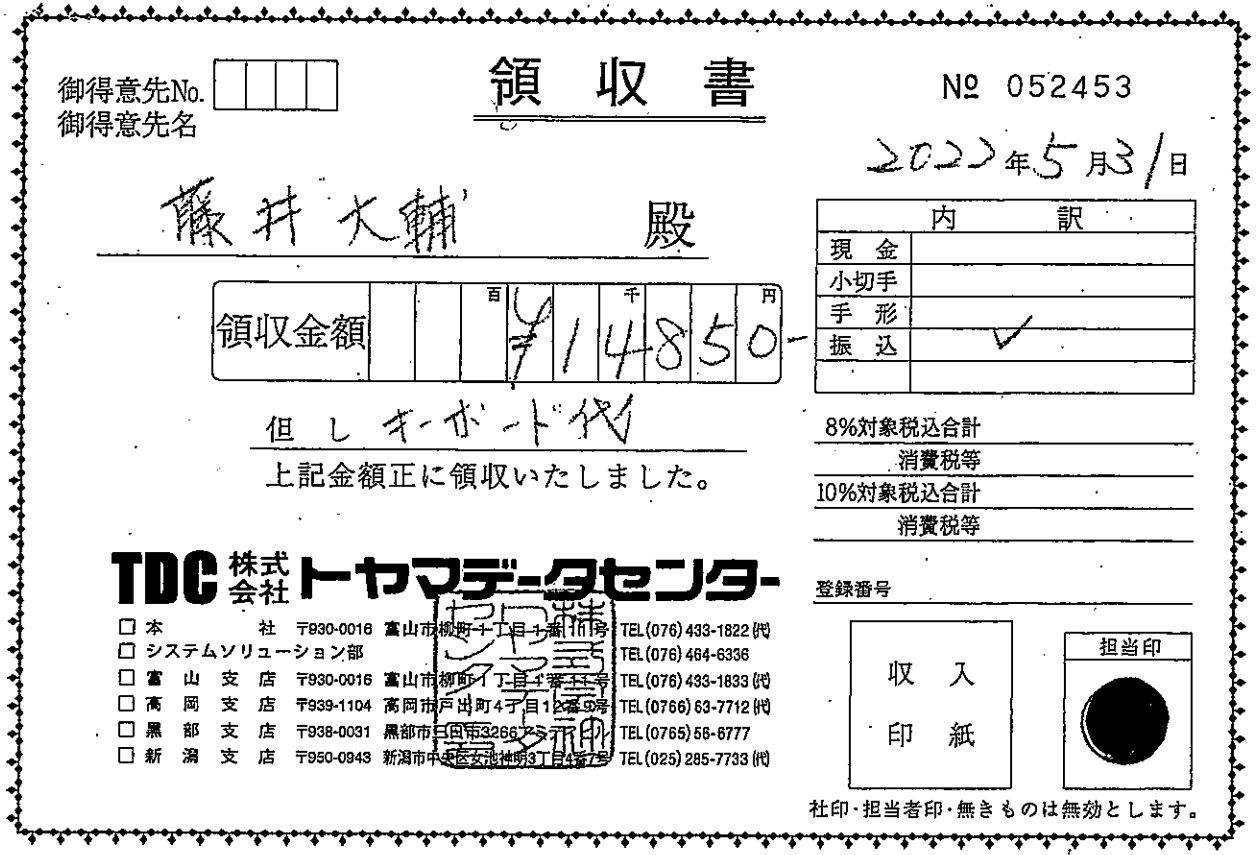 領収書
№ 052453
御得意先No.
御得意先名
2022年5月31日
藤井大輔 殿
領収金額 百 千 円
¥14850-
但し キーボード代
上記金額正に領収いたしました。
内訳
現金
小切手
手形
振込 ✓
8%対象税込合計
消費税等
10%対象税込合計
消費税等
登録番号
TDC 株式会社 トヤマデータセンター
□ 本社 〒930-0016 富山市柳町1丁目1番11号 TEL(076)433-1822(代)
□ システムソリューション部 TEL(076)464-6336
□ 富山支店 〒930-0016 富山市柳町1丁目1番11号 TEL(076)433-1833(代)
□ 高岡支店 〒939-1104 高岡市戸出町4丁目12番9号 TEL(0766)63-7712(代)
□ 黒部支店 〒938-0031 黒部市三日市3266アミティビル TEL(0765)56-6777
□ 新潟支店 〒950-0943 新潟市中央区女池神明3丁目4番7号 TEL(025)285-7733(代)
収入
印紙
担当印
社印・担当者印・無きものは無効とします。